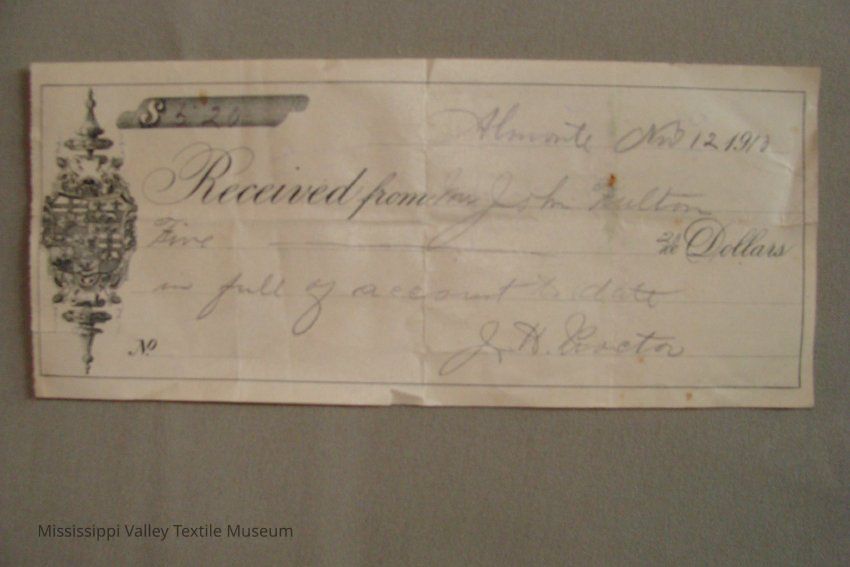 $ 5.20
Almonte Nov 12 1910
Received from Mr John Fulton
Five 20/100 Dollars
in full of account to date
No J. H. Proctor
Mississippi Valley Textile Museum